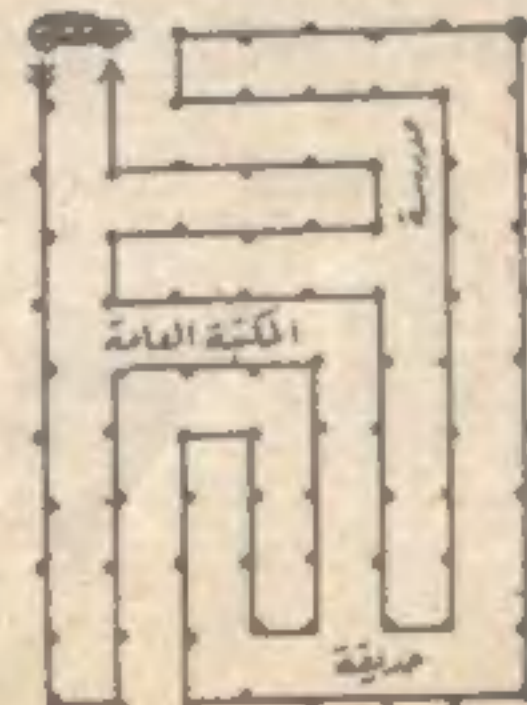 مدرسة
المكتبة العامة
حديقة